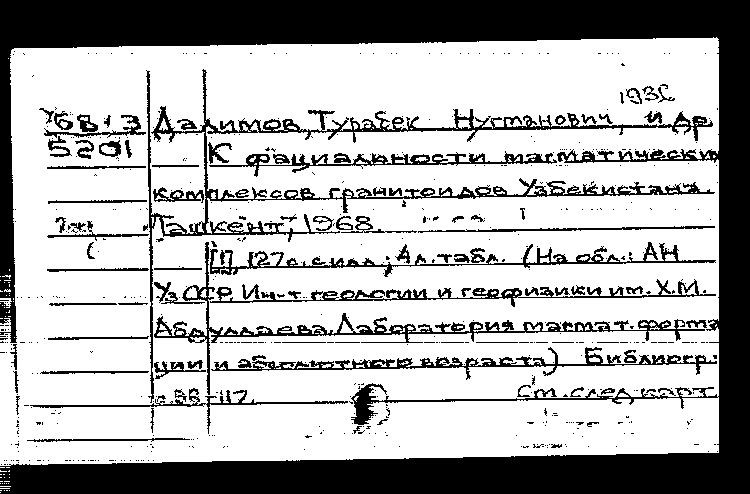 193
У68-13 Далимов, Турабек Нугманович, и др
5201 К фациальности магматически
комплексов гранитоидов Узбекистана.
Ташкент, 1968.
127 л. с илл.; 4 л. табл. (На обл.: АН
УзССР. Ин-т геологии и геофизики им. Х.М.
Абдуллаева. Лаборатория магмат. форма
ции и абсолютного возраста) Библиогр:
с. 98-117. См. след. карт.